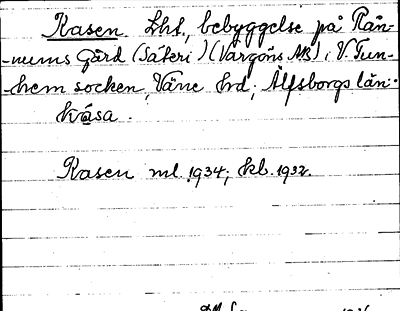 Rasen. Lht., bebyggelse på Rån-
-nums Gård (Säteri) (Vargöns AB), V. Tun-
-hem socken, Väne hd; Älfsborgs län.
Rasen ml. 1934; kb. 1932.